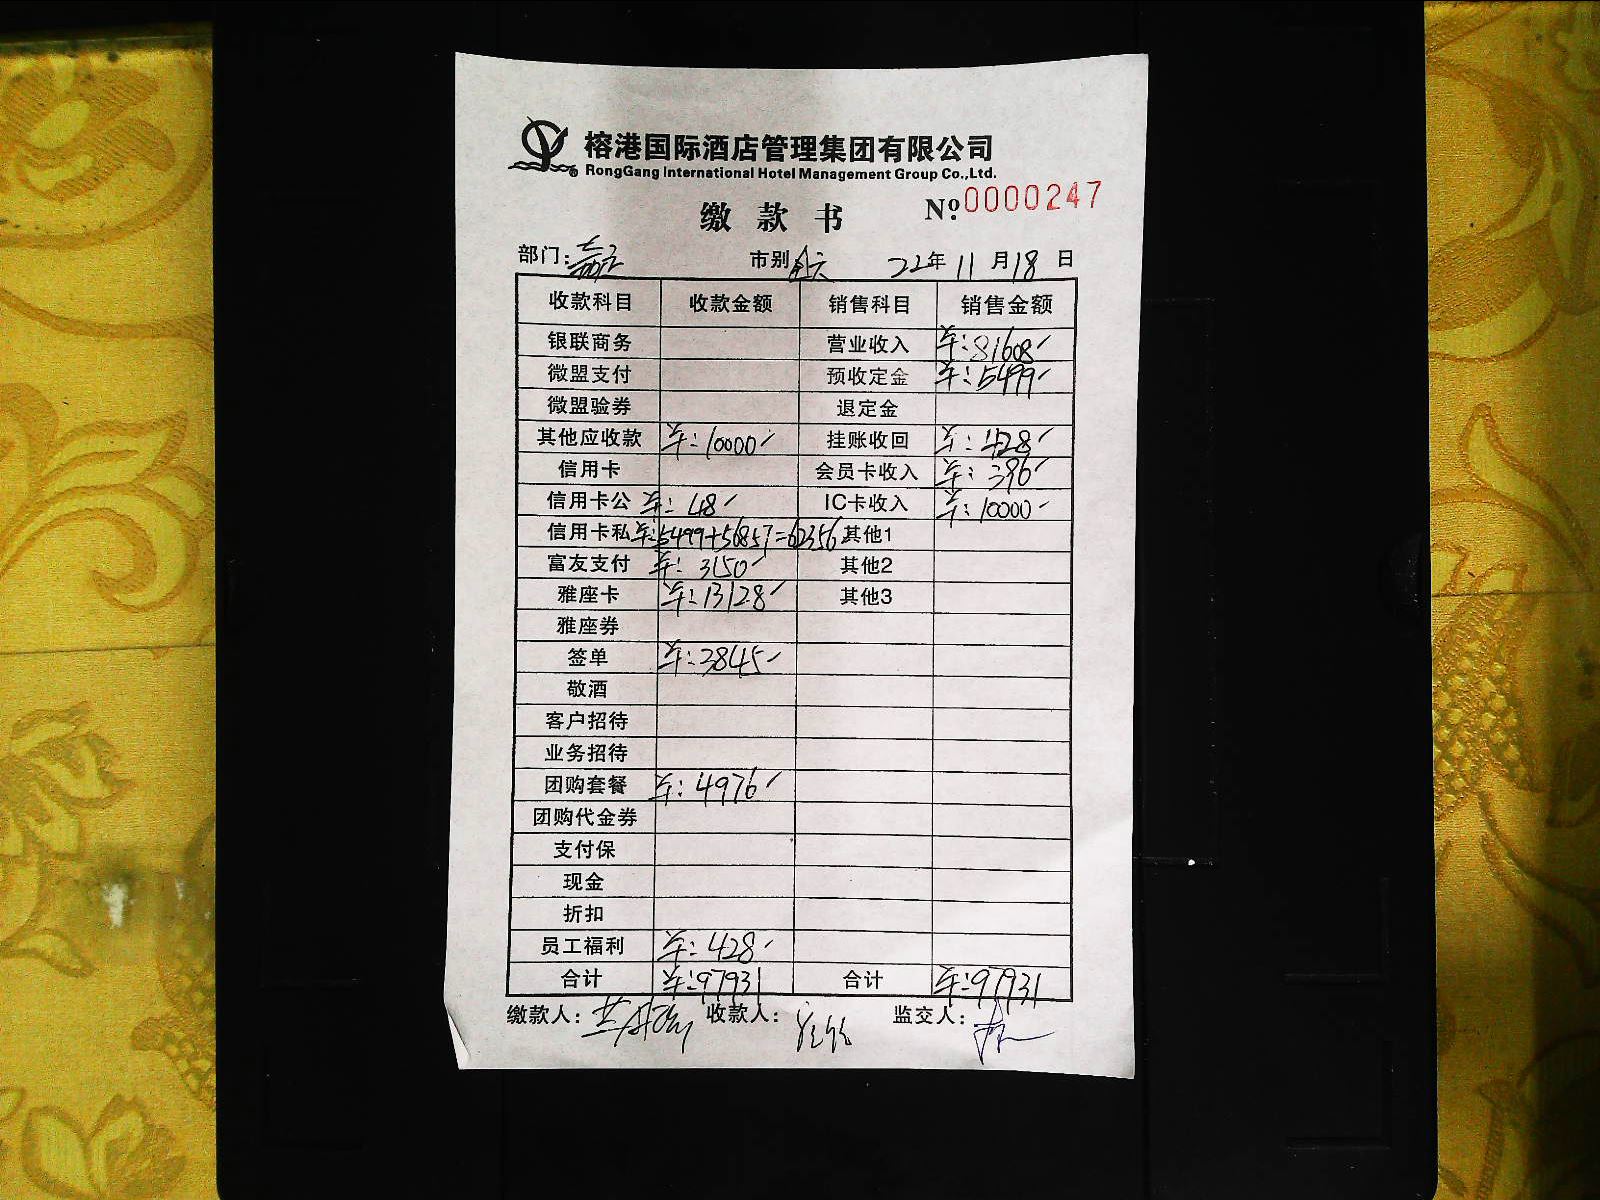 榕港国际酒店管理集团有限公司
RongGang International Hotel Management Group Co.,Ltd.
缴款书 Nº:0000247
部门: 市别 22年11月18日
收款科目 收款金额 销售科目 销售金额
银联商务 营业收入 :81608
微盟支付 预收定金 :5499
微盟验券 退定金
其他应收款 :10000 挂账收回 :428
信用卡 会员卡收入 :396
信用卡公 :48 IC卡收入 :10000
信用卡私 5499+56857=62356 其他1
富友支付 :3150 其他2
雅座卡 :13128 其他3
雅座券
签单 :3845
敬酒
客户招待
业务招待
团购套餐 :4976
团购代金券
支付保
现金
折扣
员工福利 :428
合计 :97931 合计 :97931
缴款人: 收款人: 监交人: